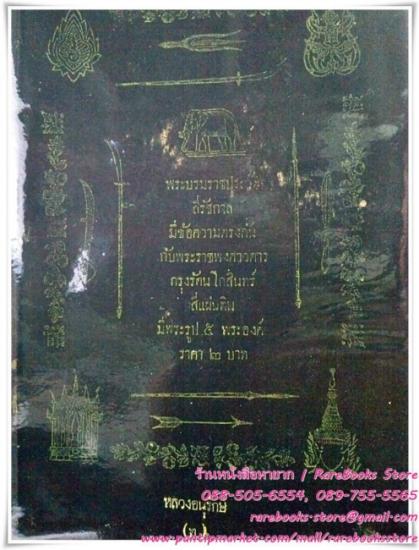 พระบรมราชประวัติ
สี่รัชกาล
มีข้อความตรงกัน
กับพระราชพงศาวดาร
กรุงรัตนโกสินทร์
สี่แผ่นดิน
มีพระรูป ๕ พระองค์
ราคา ๒ บาท
ร้านหนังสือหายาก / RareBooks Store
088-505-6554, 089-755-5565
rarebooks-store@gmail.com
หลวงอนุรักษ์
www.pantipmarket.com/mall/rarebooksstore